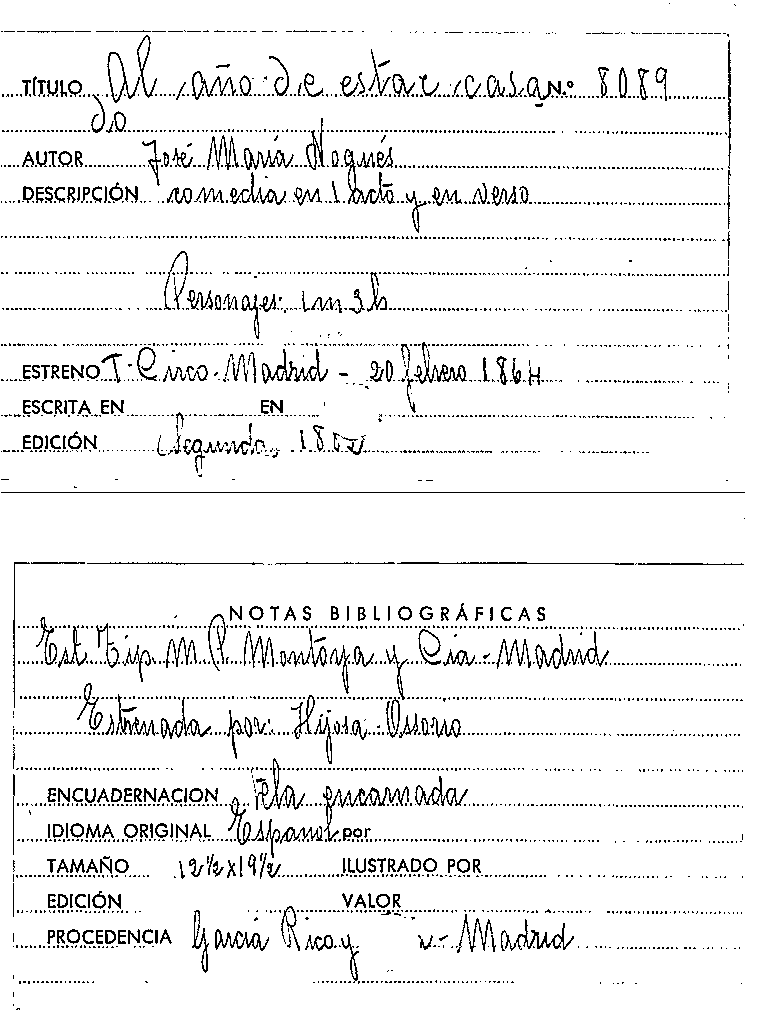 TÍTULO Al año de estar casa N.º 8089
do
AUTOR José María Nogués
DESCRIPCIÓN comedia en 1 acto y en verso
Personajes: 1m 3h
ESTRENO T. Circo. Madrid - 20 febrero 1864
ESCRITA EN EN
EDICIÓN Segunda,
NOTAS BIBLIOGRÁFICAS
Est Tip. M. P. Montoya y Cia - Madrid
Estrenada por: Hijosa - Ossorio
ENCUADERNACION Tela encarnada
IDIOMA ORIGINAL Español por
TAMAÑO 12½ x 19½ ILUSTRADO POR
EDICIÓN VALOR
PROCEDENCIA García Rico y - Madrid